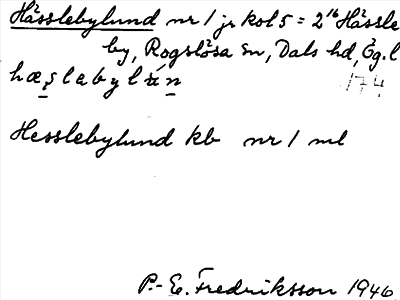 Hässlebylund nr 1 jr kol 5 = 2¹⁶ Hässle
by, Rogslösa sn, Dals hd, Ög. l
174
Hesslebylund kb nr 1 ml
P.-E. Fredriksson 1946